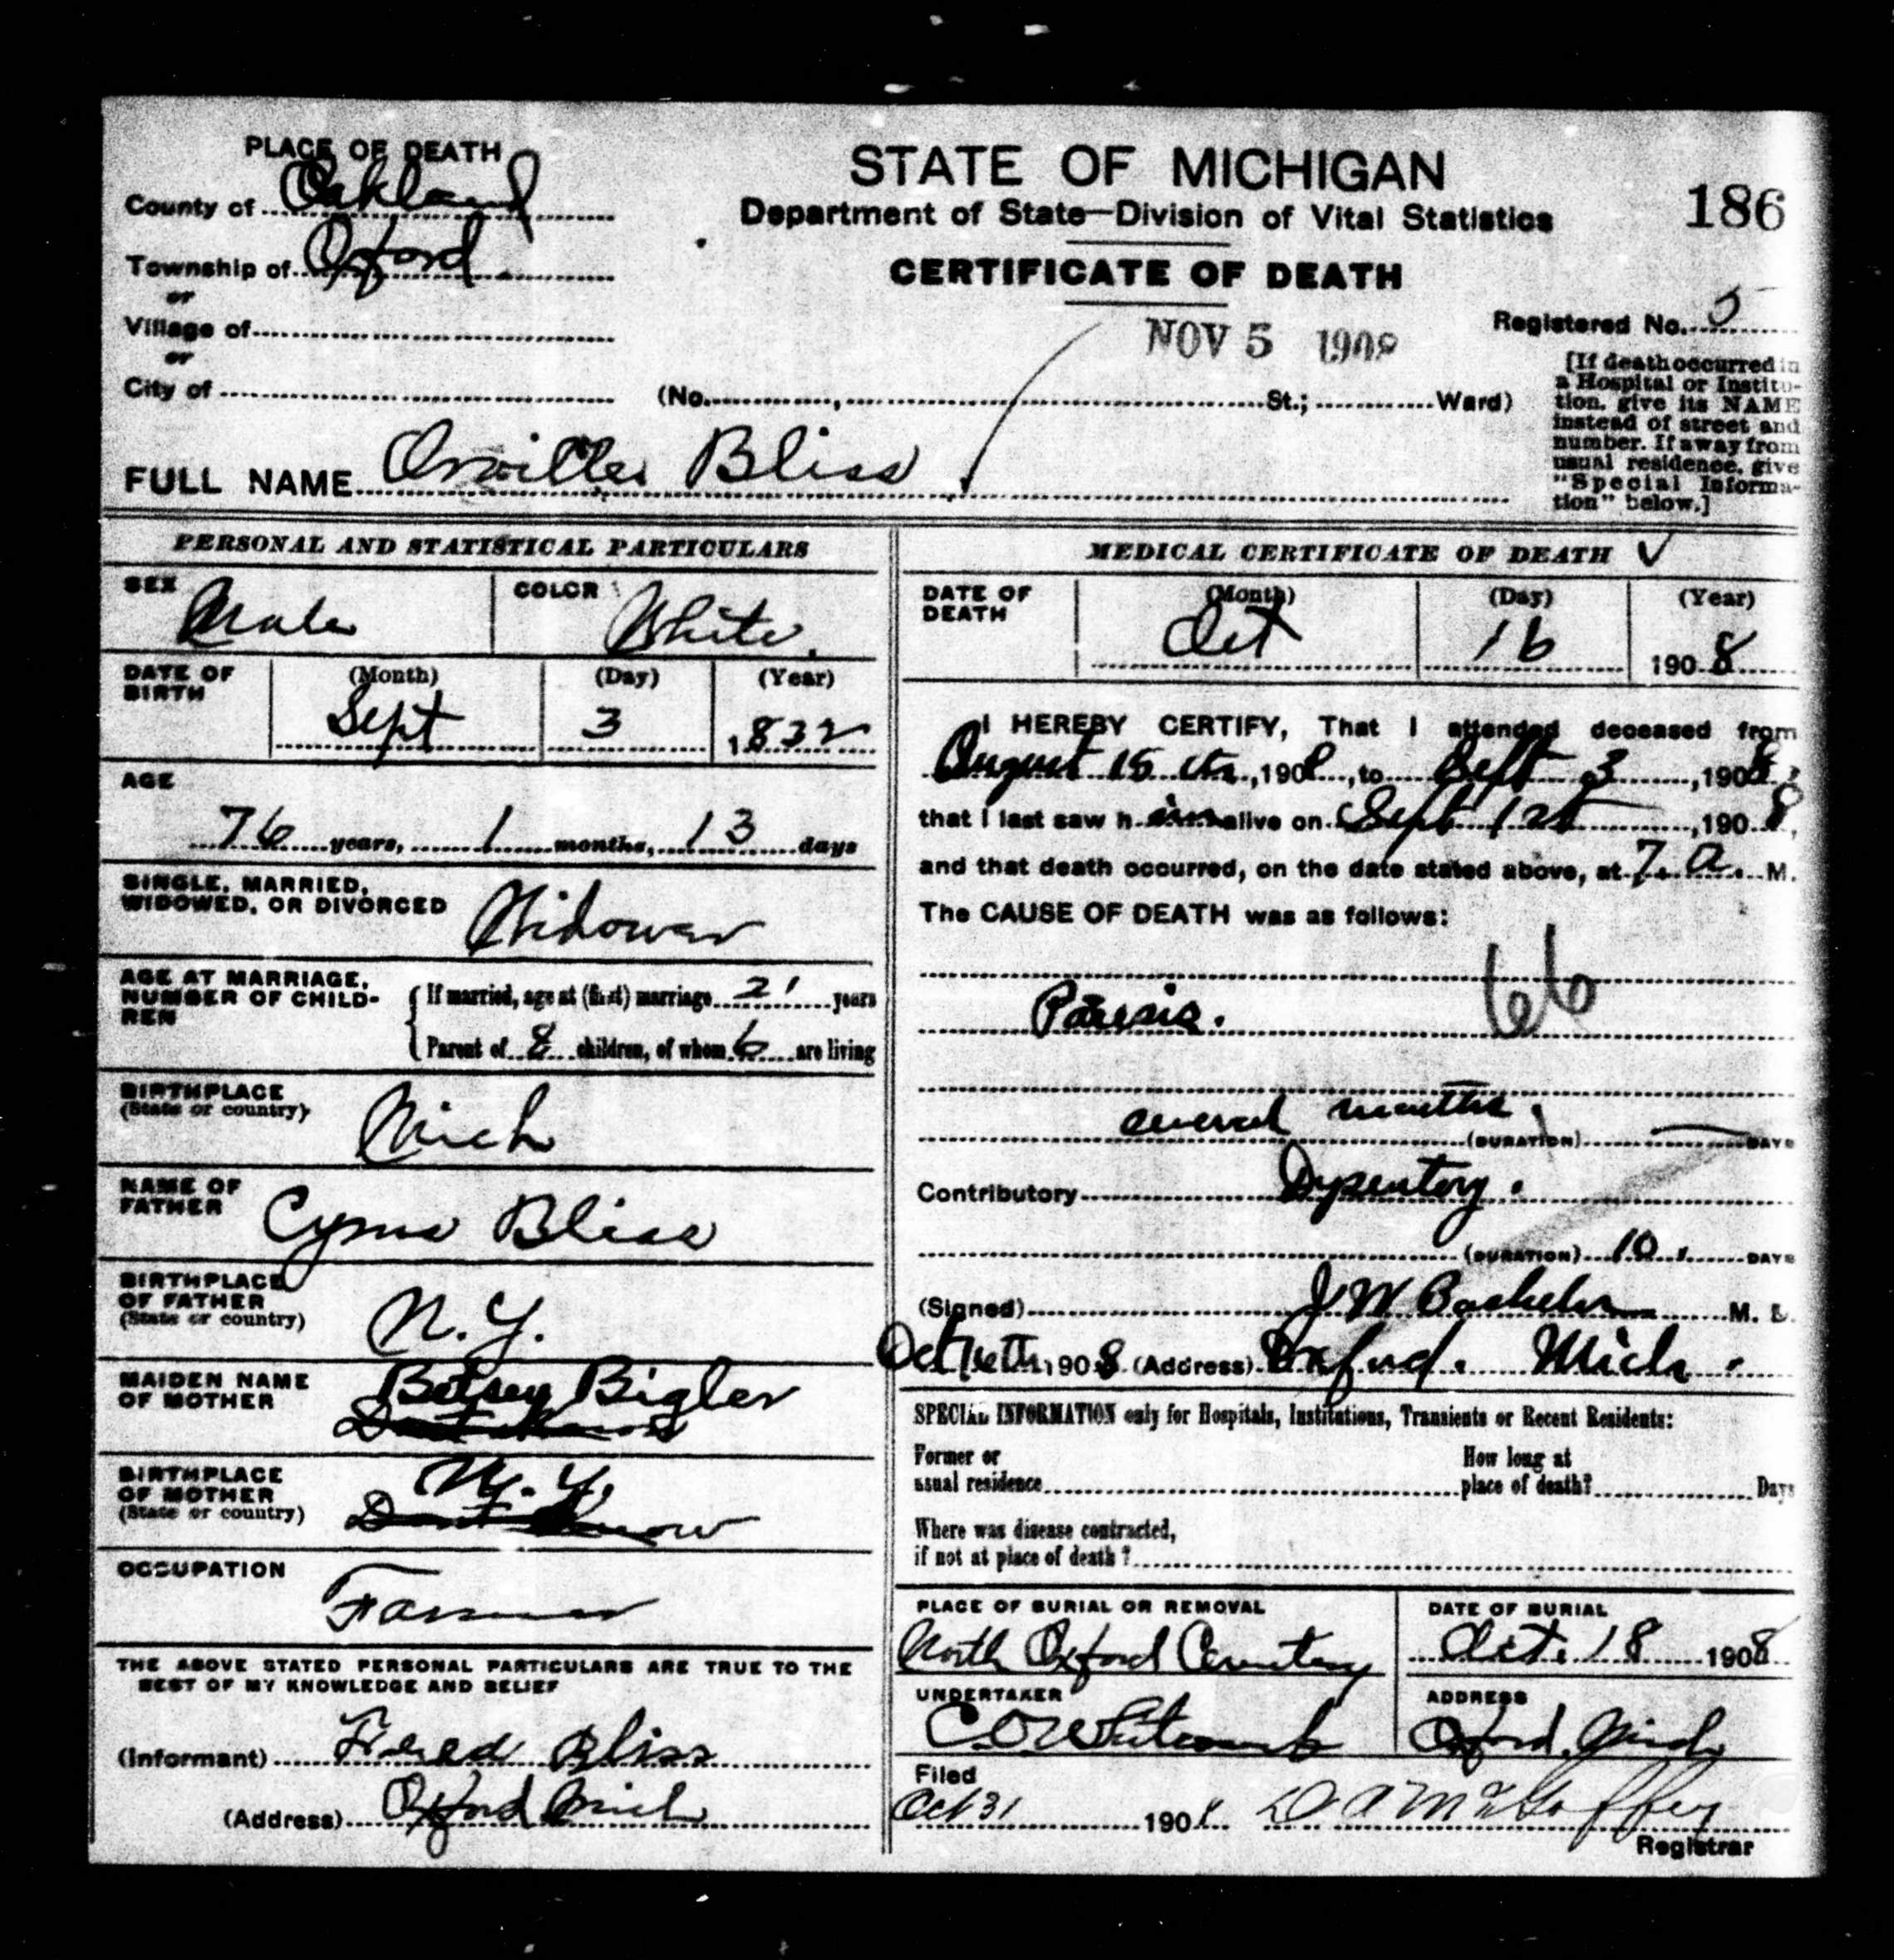 PLACE OF DEATH
County of Oakland
Township of Oxford
or
Village of
or
City of
STATE OF MICHIGAN
Department of State—Division of Vital Statistics
CERTIFICATE OF DEATH
186
NOV 5 1908
Registered No. 5
(No. , St.; Ward)
[If death occurred in
a Hospital or Institu-
tion, give its NAME
instead of street and
number. If away from
usual residence, give
"Special Informa-
tion" below.]
FULL NAME Orville Bliss
PERSONAL AND STATISTICAL PARTICULARS
SEX Male
COLOR White.
DATE OF BIRTH
(Month) (Day) (Year)
Sept 3 1832
AGE
76 years, 1 months, 13 days
SINGLE, MARRIED,
WIDOWED, OR DIVORCED Widower
AGE AT MARRIAGE,
NUMBER OF CHILD-
REN
If married, age at (first) marriage 21 years
Parent of 8 children, of whom 6 are living
BIRTHPLACE
(State or country)
Mich
NAME OF
FATHER
Cyrus Bliss
BIRTHPLACE
OF FATHER
(State or country)
N. Y.
MAIDEN NAME
OF MOTHER
Betsey Bigler
Dont Know
BIRTHPLACE
OF MOTHER
(State or country)
N. Y.
Dont Know
OCCUPATION
Farmer
THE ABOVE STATED PERSONAL PARTICULARS ARE TRUE TO THE
BEST OF MY KNOWLEDGE AND BELIEF
(Informant) Fered Bliss
(Address) Oxford Mich
MEDICAL CERTIFICATE OF DEATH
DATE OF
DEATH
(Month) (Day) (Year)
Oct 16 1908
I HEREBY CERTIFY, That I attended deceased from
August 15, 1908, to Sept 3, 1908,
that I last saw him alive on Sept 1st, 1908,
and that death occurred, on the date stated above, at 7. a. M.
The CAUSE OF DEATH was as follows:
66
Paresis.
several months.
(DURATION) DAYS
Contributory Dysentery.
(DURATION) 10. DAYS
(Signed) J W Bachelor M. D.
Oct 16th, 1908 (Address) Oxford. Mich.
SPECIAL INFORMATION only for Hospitals, Institutions, Transients or Recent Residents:
Former or
usual residence
How long at
place of death? Days
Where was disease contracted,
if not at place of death?
PLACE OF BURIAL OR REMOVAL
North Oxford Cemetery
DATE OF BURIAL
Oct. 18 1908
UNDERTAKER
C O Whitcomb
ADDRESS
Oxford, Mich
Filed
Oct 31 1908
Registrar